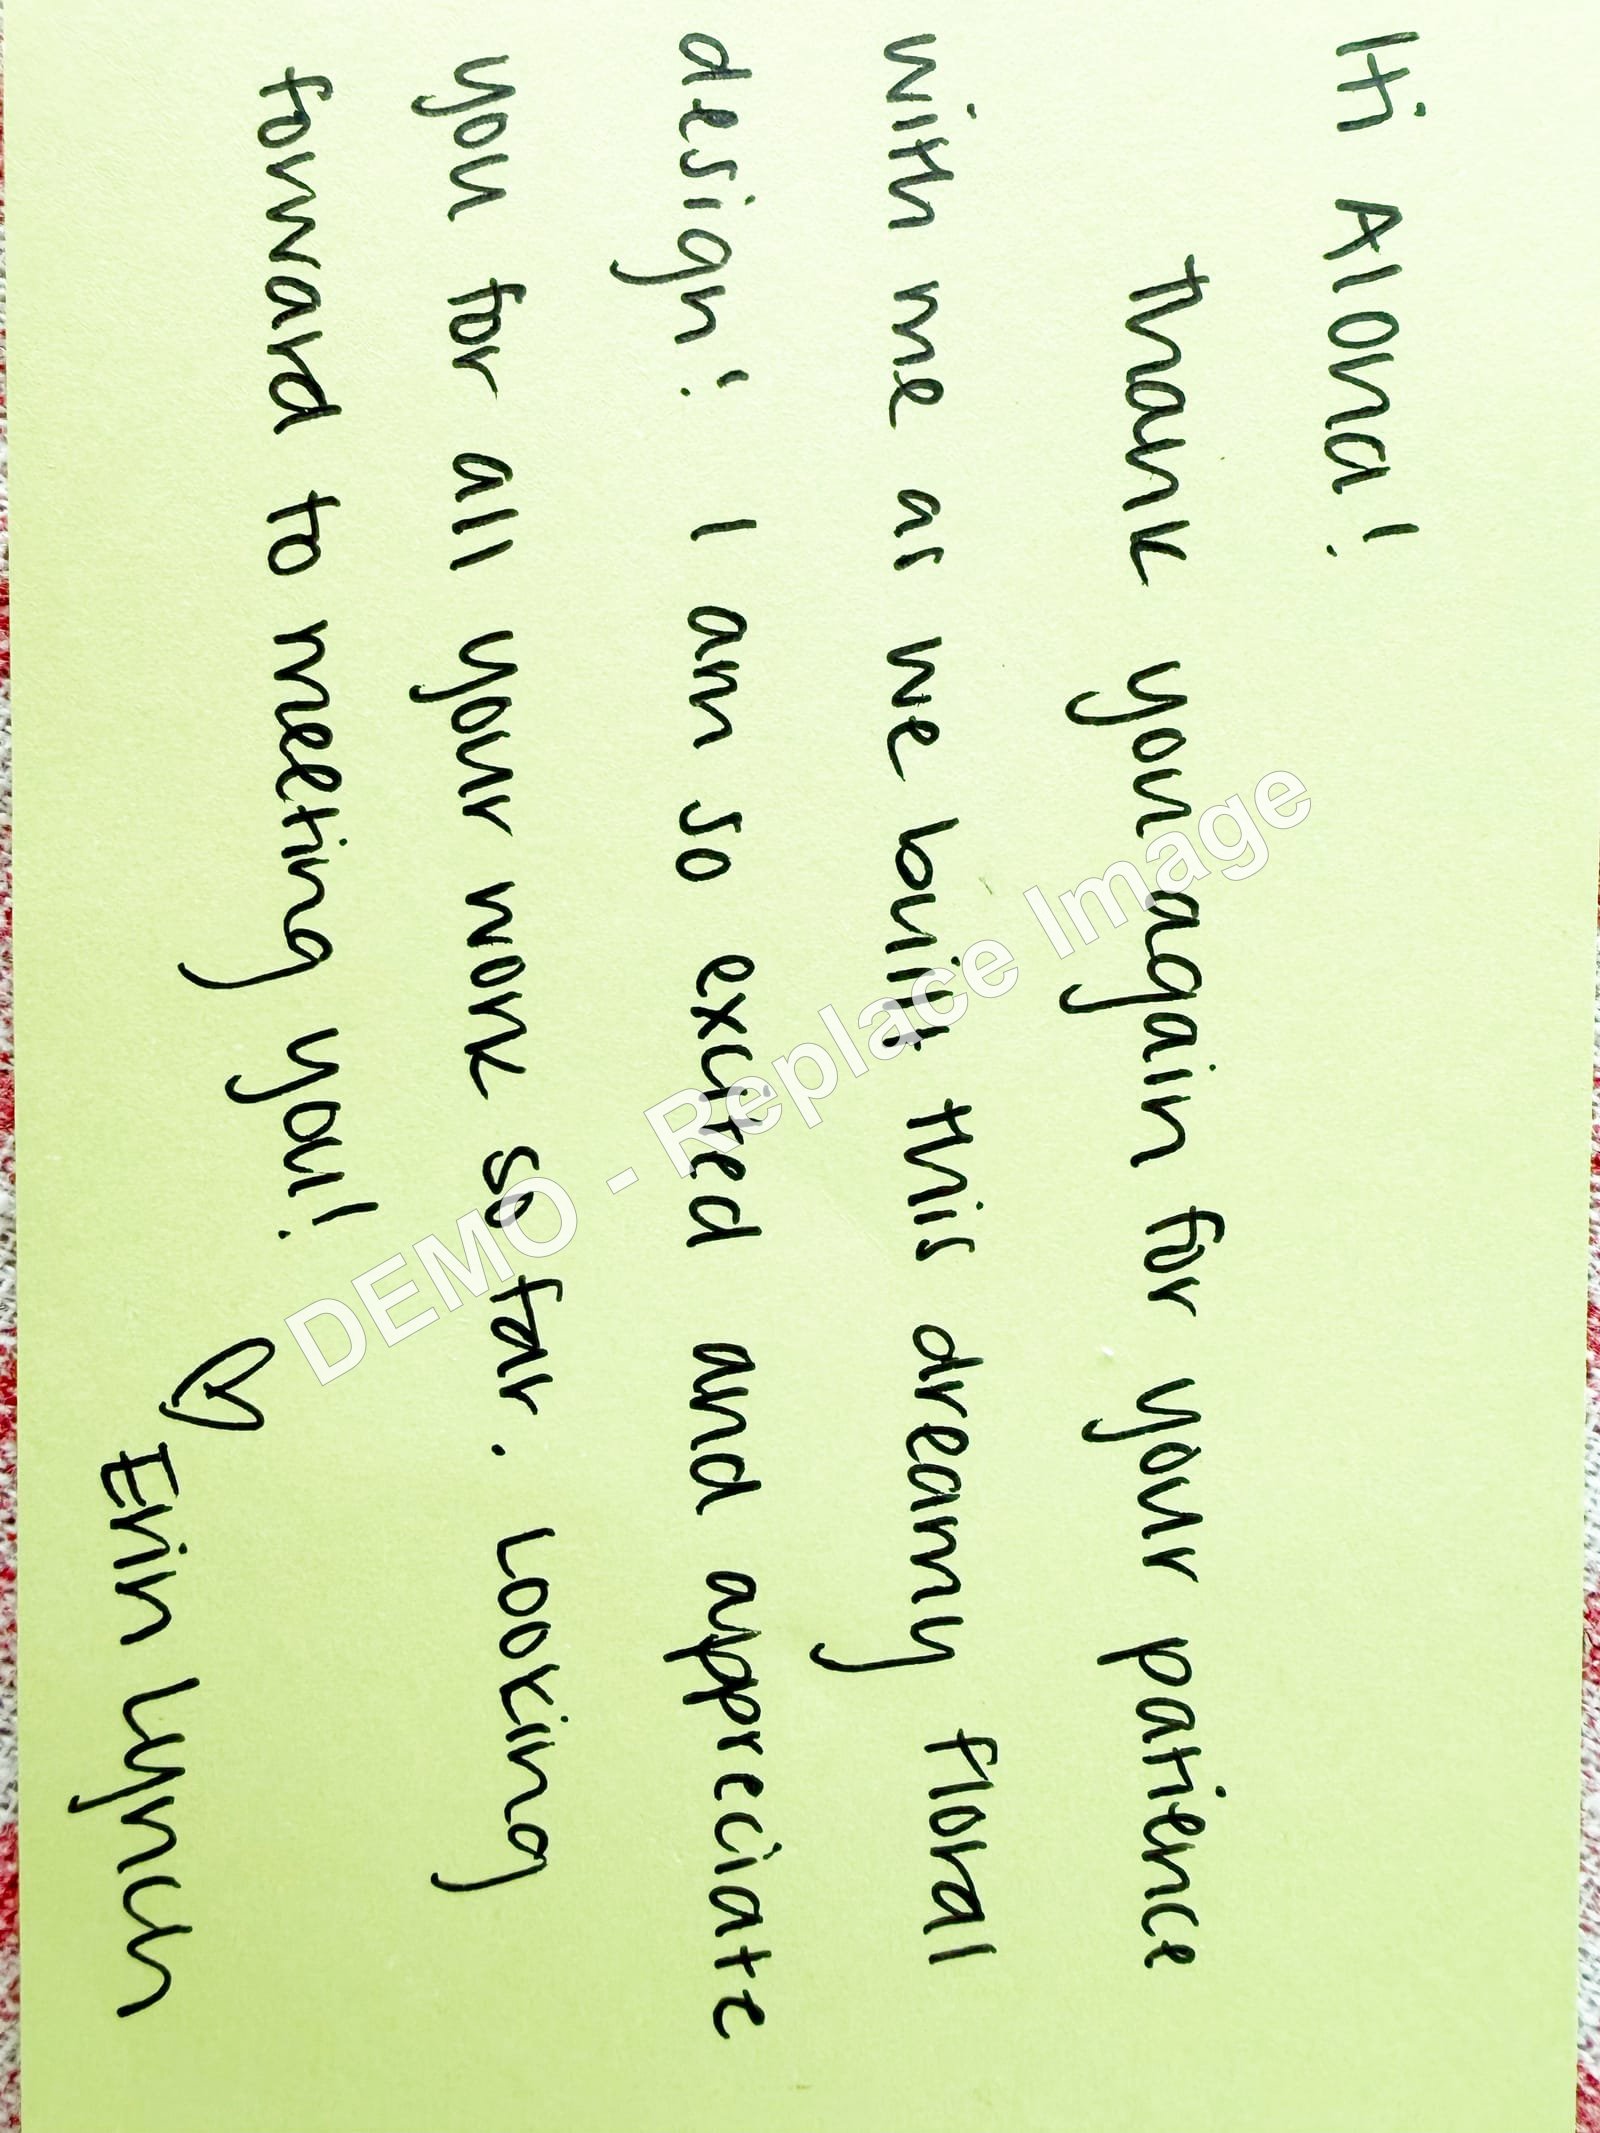 Hi Alona!
Thank you again for your patience
with me as we built this dreamy floral
design! I am so excited and appreciate
you for all your work so far. Looking
forward to meeting you!
♡ Erin Lynch
DEMO - Replace Image